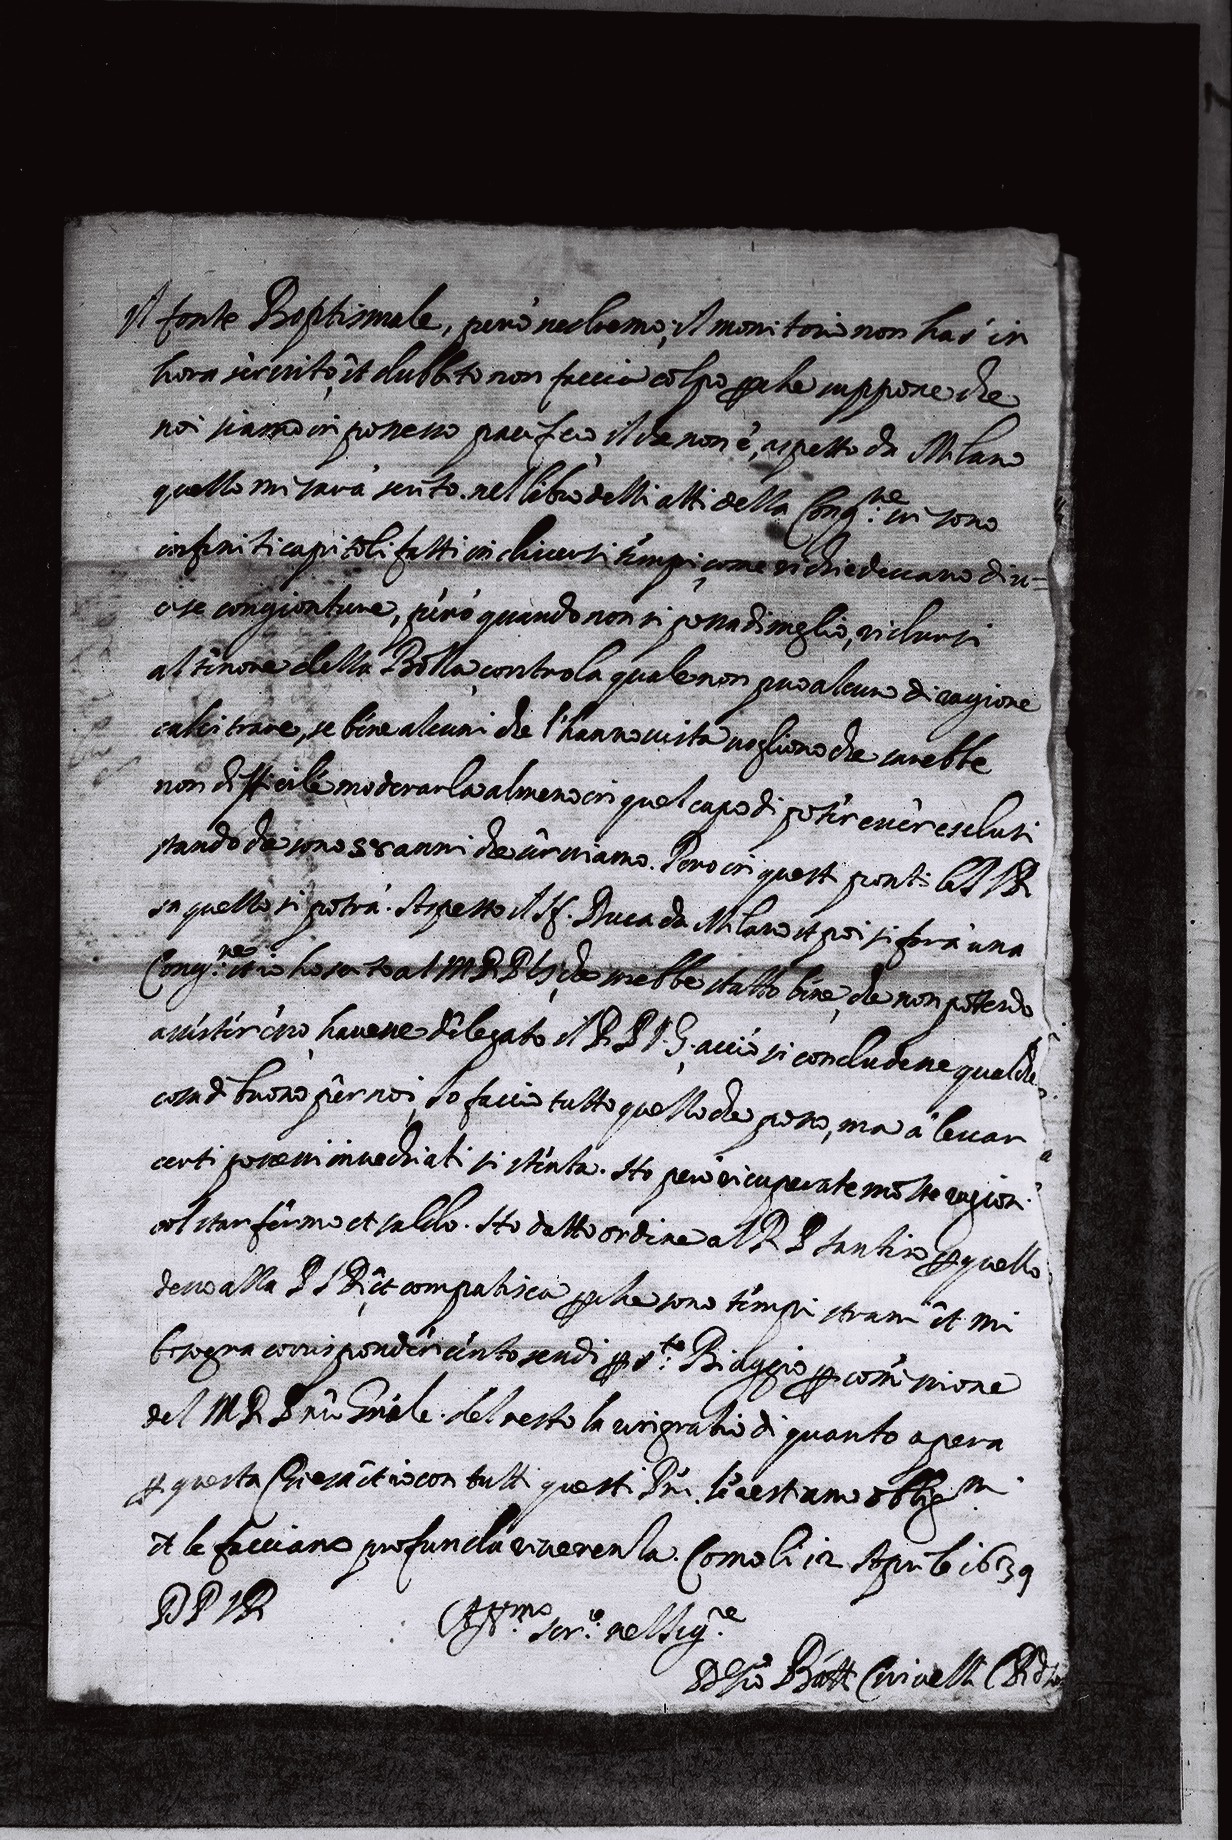 il fonte Baptismale, però vedremo, il monitorio non ha s' in
hora servito, et dubbito non faccia colpo perche suppone che
noi siamo in possesso pacifico il che non è, aspetto da Milano
quello mi sarà scrito. nel libro delli atti della Cong.ne vi sono
infiniti capitoli fatti in diversi tempi, come richiedevano div=
erse congionture, però quando non si possa di meglio, ridursi
al tenore della Bolla, contro la quale non può alcuno di ragione
calcitrare, se bene alcuni che l'hanno vista vogliono che sarebbe
non difficile moderarla almeno in quel capo di poter esser esclusi
stando che sono anni che serviamo. Pero in questi ponti la P V R
sa quello si potrà. Aspetto il Sig. Duca da Milano et poi si farà una
Cong.ne et io ho scrito al M R P che sarebbe statto bene, che non pottendo
assister esso havesse delegato il R P P. G. acciò si concludesse qualche
cosa di buono per noi, Io faccio tutto quello che posso, ma à levar
certi possessi invechiati si stenta. Ho però ricuperate molte ragioni
col star fermo et saldo. Ho datto ordine al R P Santino per quello
devo alla P V R, et compatisca perche sono tempi strani et mi
bisogna corrisponder cento scudi per s.to Biaggio per comissione
del M R P nro Gnale. del resto la ringratio di quanto opera
per questa Chiesa et io con tutti questi Pri. le restiamo obblig.mi
et le facciamo profunda riverenza. Como li 12 Aprile 1639
D P V R
Aff.mo ser.re nel Sig.re
D Gio Batt Crivelli C R